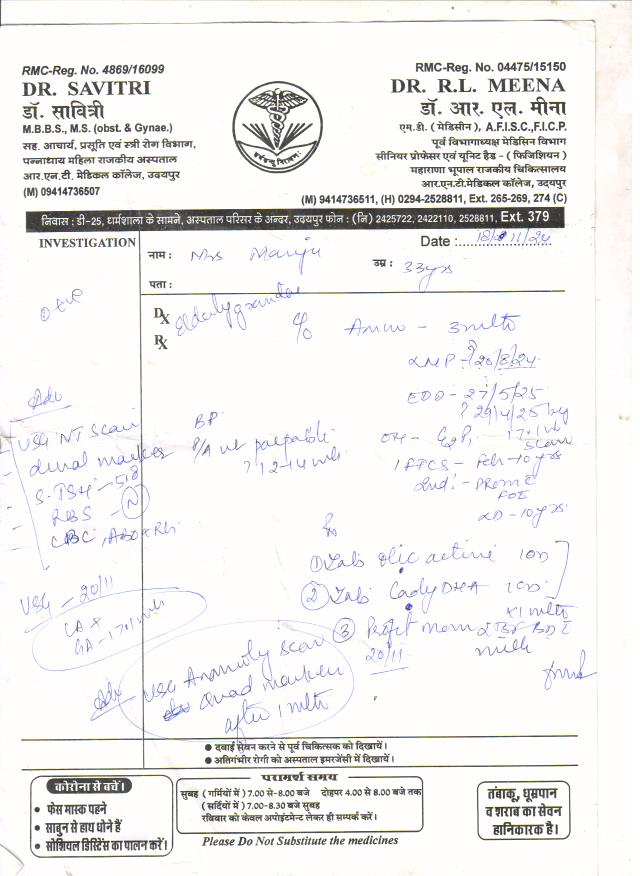 RMC-Reg. No. 4869/16099
DR. SAVITRI
डॉ. सावित्री
M.B.B.S., M.S. (obst. & Gynae.)
सह. आचार्य, प्रसूति एवं स्त्री रोग विभाग,
पन्नाधाय महिला राजकीय अस्पताल
आर.एन.टी. मेडिकल कॉलेज, उदयपुर
(M) 09414736507
RMC-Reg. No. 04475/15150
DR. R.L. MEENA
डॉ. आर. एल. मीना
एम.डी. ( मेडिसीन ), A.F.I.S.C.,F.I.C.P.
पूर्व विभागाध्यक्ष मेडिसिन विभाग
सीनियर प्रोफेसर एवं यूनिट हैड - ( फिजिशियन )
महाराणा भूपाल राजकीय चिकित्सालय
आर.एन.टी.मेडिकल कॉलेज, उदयपुर
(M) 9414736511, (H) 0294-2528811, Ext. 265-269, 274 (C)
निवास : डी-25, धर्मशाला के सामने, अस्पताल परिसर के अन्दर, उदयपुर फोन : (नि) 2425722, 2422110, 2528811, Ext. 379
INVESTIGATION
Date : 18/11/24
नाम : Mrs Manju
उम्र : 33yrs
पता :
DX Elderly
RX
C/o Amm - 3mth
LMP - ?20/8/24
EDD - 27/5/25
? 29/4/25 by
17.1 wk
scan
OH - G2P1
1 FTCS - Feh - 10 yrs
2nd! - PROM C
LD - 10yrs
BP
P/A ut palpable
? 12-14 wk
Adv
USG NT scan
dual marker
S. TSH - 5.8
RBS - N
CBC, ABO & Rh
USG - 20/11
GA - 17.1 wk
Rx
① Tab olic active 1OD
② Tab Cady DHA 1OD
x1 mth
③ Protit mom 2 BD C
milk
20/11
Adv USG Anamoly scan
Quad marker
after 1 mth
● दवाई सेवन करने से पूर्व चिकित्सक को दिखायें।
● अतिगंभीर रोगी को अस्पताल इमरजेंसी में दिखायें।
कोरोना से बचें।
• फेस मास्क पहने
• साबुन से हाथ धोने हैं
• सोशियल डिस्टेंस का पालन करें।
परामर्श समय
सुबह ( गर्मियों में ) 7.00 से-8.00 बजे दोहपर 4.00 से 8.00 बजे तक
( सर्दियों में ) 7.00-8.30 बजे सुबह
रविवार को केवल अपोइंटमेन्ट लेकर ही सम्पर्क करें।
तंबाकू, धूम्रपान
व शराब का सेवन
हानिकारक है।
Please Do Not Substitute the medicines